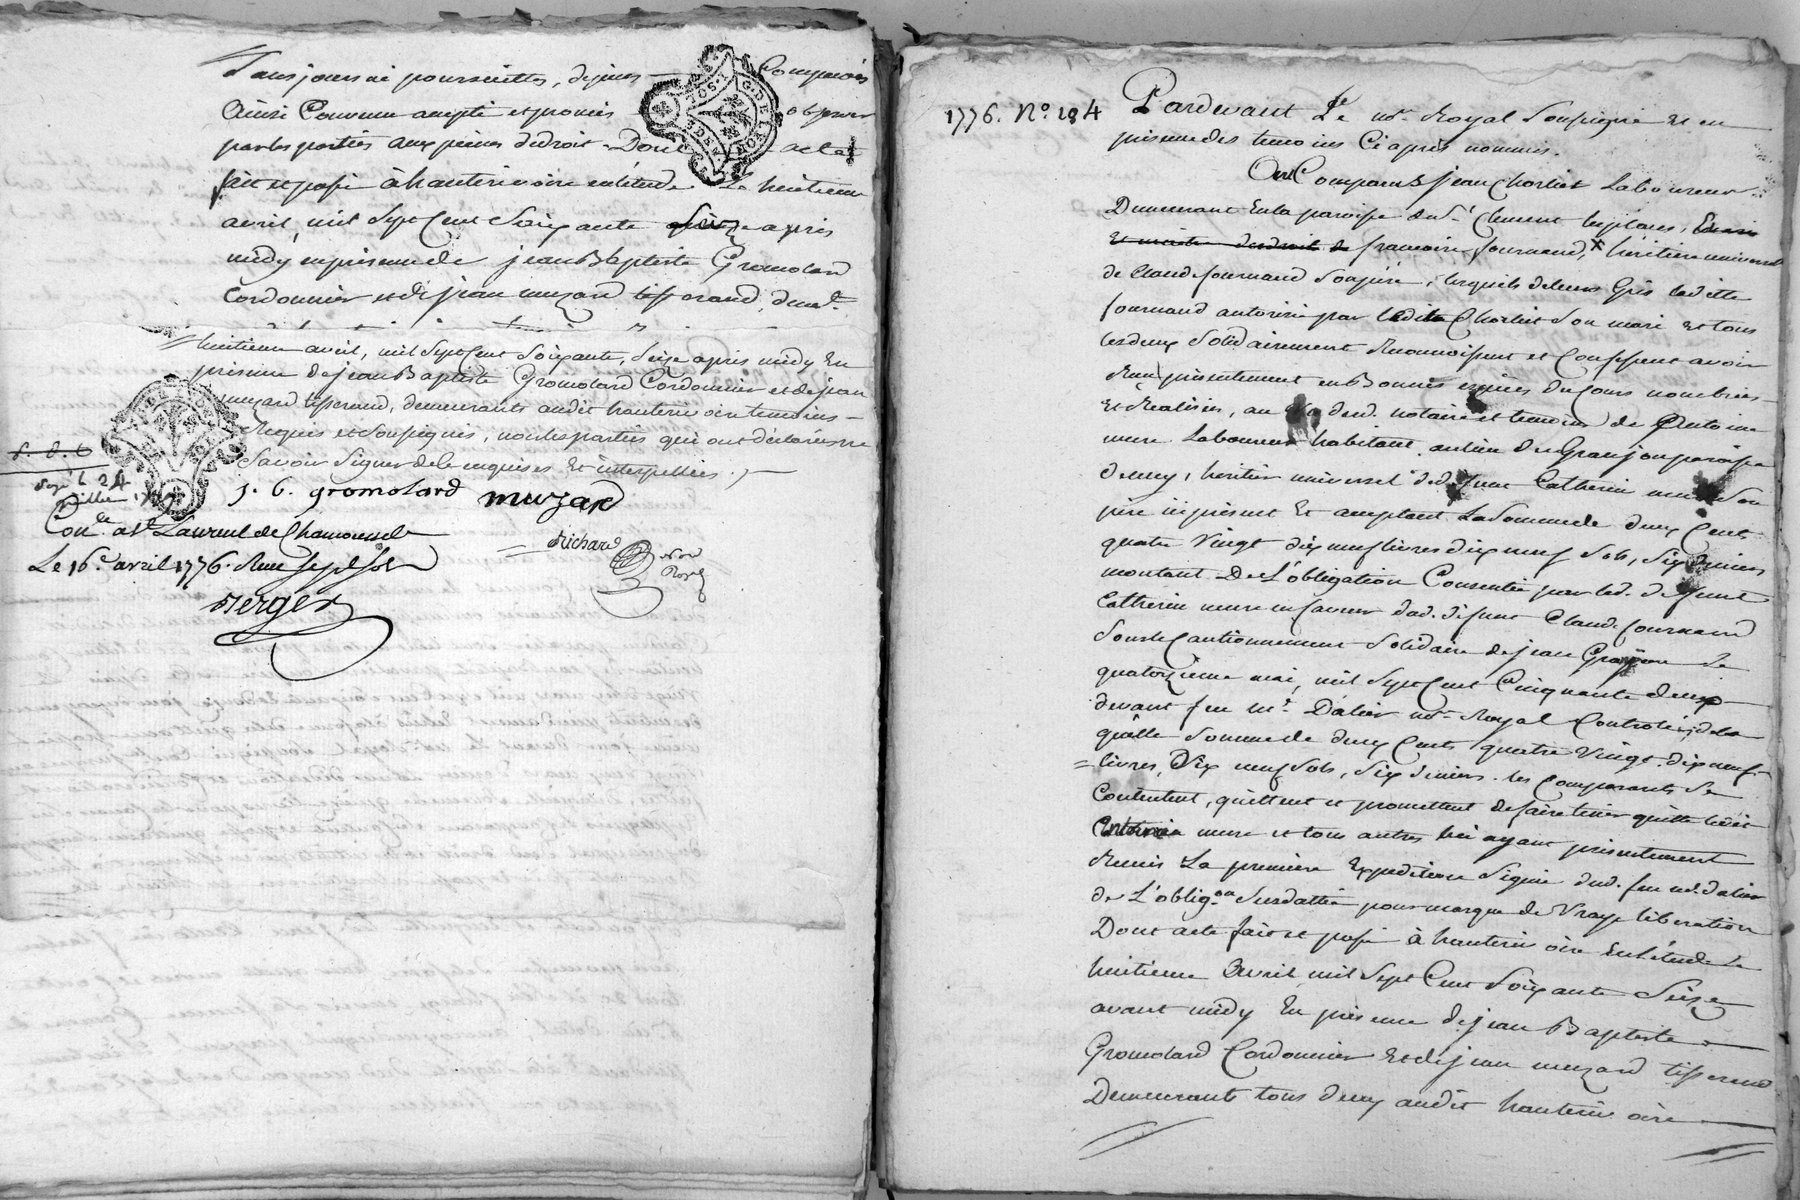 Sans jours ni poursuittes, dejines Comparois
Ainsi Convenu accepté et promis observer
par les parties aux peines de droit. Dont acte
fait et passé à hauterivoire en l'étude Le huitieme
avril, mil Sept Cent Soixante Seize apres
midy en présence de jean Baptiste Gromolard
Cordonnier et de jean muzard tisserand, demt.
huitieme avril, mil Sept Cent Soixante, Seize apres midy En
présence de jean Baptiste Gromolard Cordonnier et de jean
muzard tisserand, demeurants audit hauterivoire temoins
Requis et Soussignés, non les parties qui ont déclaré ne
Savoir Signer de ce enquises Et interpellées.
J. b. gromolard muzard
Con.lé a St. Laurent de Chamousset
Le 16e. avril 1776. Reçu Sept Sols
Richard
Nore
Royal
Berger
1776. No. 184
Pardevant Le nore. Royal Soussigné Et en
présence des temoins Ci après nommés.
Ont Comparus jean Chorliet Laboureur
Demeurant En la paroisse de St. Clement les places,
françoise fournand, héritiere universelle
de Claude fournand Son père, lesquels de leurs Grés ladite
fournand autorisée par ledit Chorliet Son mari Et tous
les deux Solidairement Reconnoissent et Confessent avoir
Reçu présentement en Bonnes espèces du Cours nombrées
Et Réalisées, au Vû dud. notaire et temoins de Antoine
mure Laboureur habitant au lieu de Granjon paroisse
dud. défunt Catherin mure Son
père ici présent Et acceptant La Somme de deux Cent
quatre Vingt dix neuf livres dix neuf Sols, Six deniers
montant De L'obligation Consentie par led. défunt
Catherin mure en faveur dud. défunt Claude fournand
Sous le Cautionnement Solidaire de jean Le
quatorzieme mai, mil Sept Cent Cinquante deux
devant feu me. Dalier nore. Royal Controlée, de la
quelle Somme de deux Cents quatre Vingt dix neuf
livres, Dix neuf Sols, Six deniers. les Comparants Se
Contentent, quittent et promettent de faire tenir quitte ledit
Antoine mure et tous autres lui ayant présentement
Remis La première Expedition Signée dud. feu me. dalier
de L'oblig.on Susdattée pour marque de Vraye liberation
Dont acte fait et passé à hauterivoire En l'étude Le
huitieme avril mil Sept Cent Soixante Seize
avant midy En présence de jean Baptiste
Gromolard Cordonnier Et de jean muzard tisserand
Demeurants tous deux audit hauterivoire